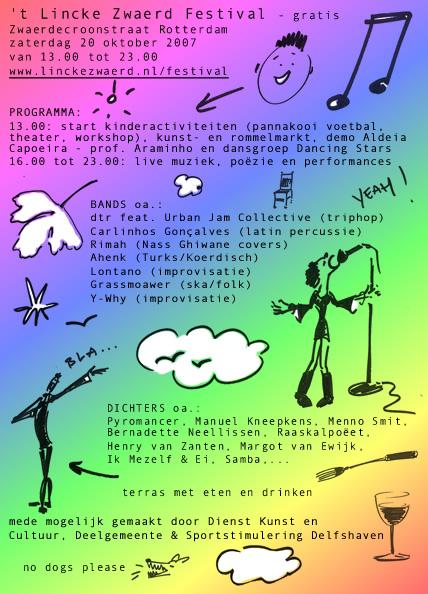 't Lincke Zwaerd Festival - gratis
Zwaerdecroonstraat Rotterdam
zaterdag 20 oktober 2007
van 13.00 tot 23.00
www.linckezwaerd.nl/festival
PROGRAMMA:
13.00: start kinderactiviteiten (pannakooi voetbal,
theater, workshop), kunst- en rommelmarkt, demo Aldeia
Capoeira - prof. Araminho en dansgroep Dancing Stars
16.00 tot 23.00: live muziek, poëzie en performances
YEAH!
BANDS oa.:
dtr feat. Urban Jam Collective (triphop)
Carlinhos Gonçalves (latin percussie)
Rimah (Nass Ghiwane covers)
Ahenk (Turks/Koerdisch)
Lontano (improvisatie)
Grassmoawer (ska/folk)
Y-Why (improvisatie)
BLA...
DICHTERS oa.:
Pyromancer, Manuel Kneepkens, Menno Smit,
Bernadette Neellissen, Raaskalpoëet,
Henry van Zanten, Margot van Ewijk,
Ik Mezelf & Ei, Samba,...
terras met eten en drinken
mede mogelijk gemaakt door Dienst Kunst en
Cultuur, Deelgemeente & Sportstimulering Delfshaven
no dogs please